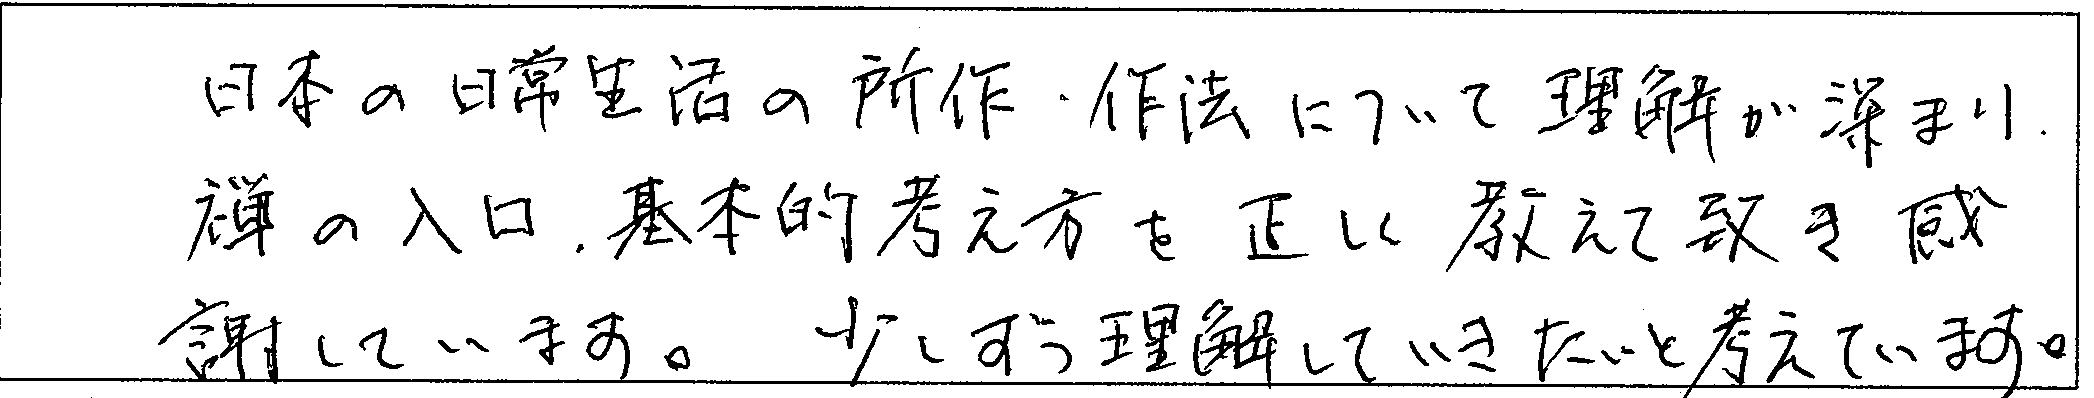 日本の日常生活の所作・作法について理解が深まり、
禅の入口、基本的考え方を正しく教えて致き感
謝しています。 少しずつ理解していきたいと考えています。